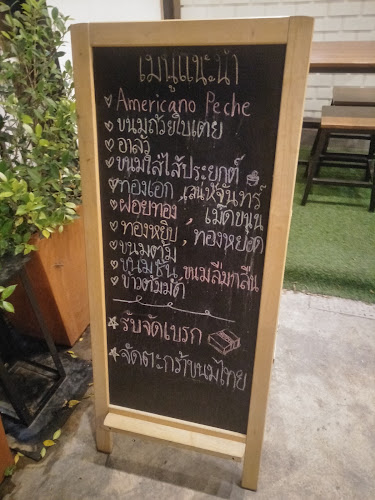 เมนูแนะนำ
Americano Peche
ขนมถ้วยใบเตย
อาลัว
ขนมใส่ไส้ประยุกต์
ทองเอก, เสน่ห์จันทร์
ฝอยทอง, เม็ดขนุน
ทองหยิบ, ทองหยอด
ขนมต้ม
ขนมชั้น, ขนมลืมกลืน
ข้าวต้มมัด
รับจัดเบรก
จัดตะกร้าขนมไทย